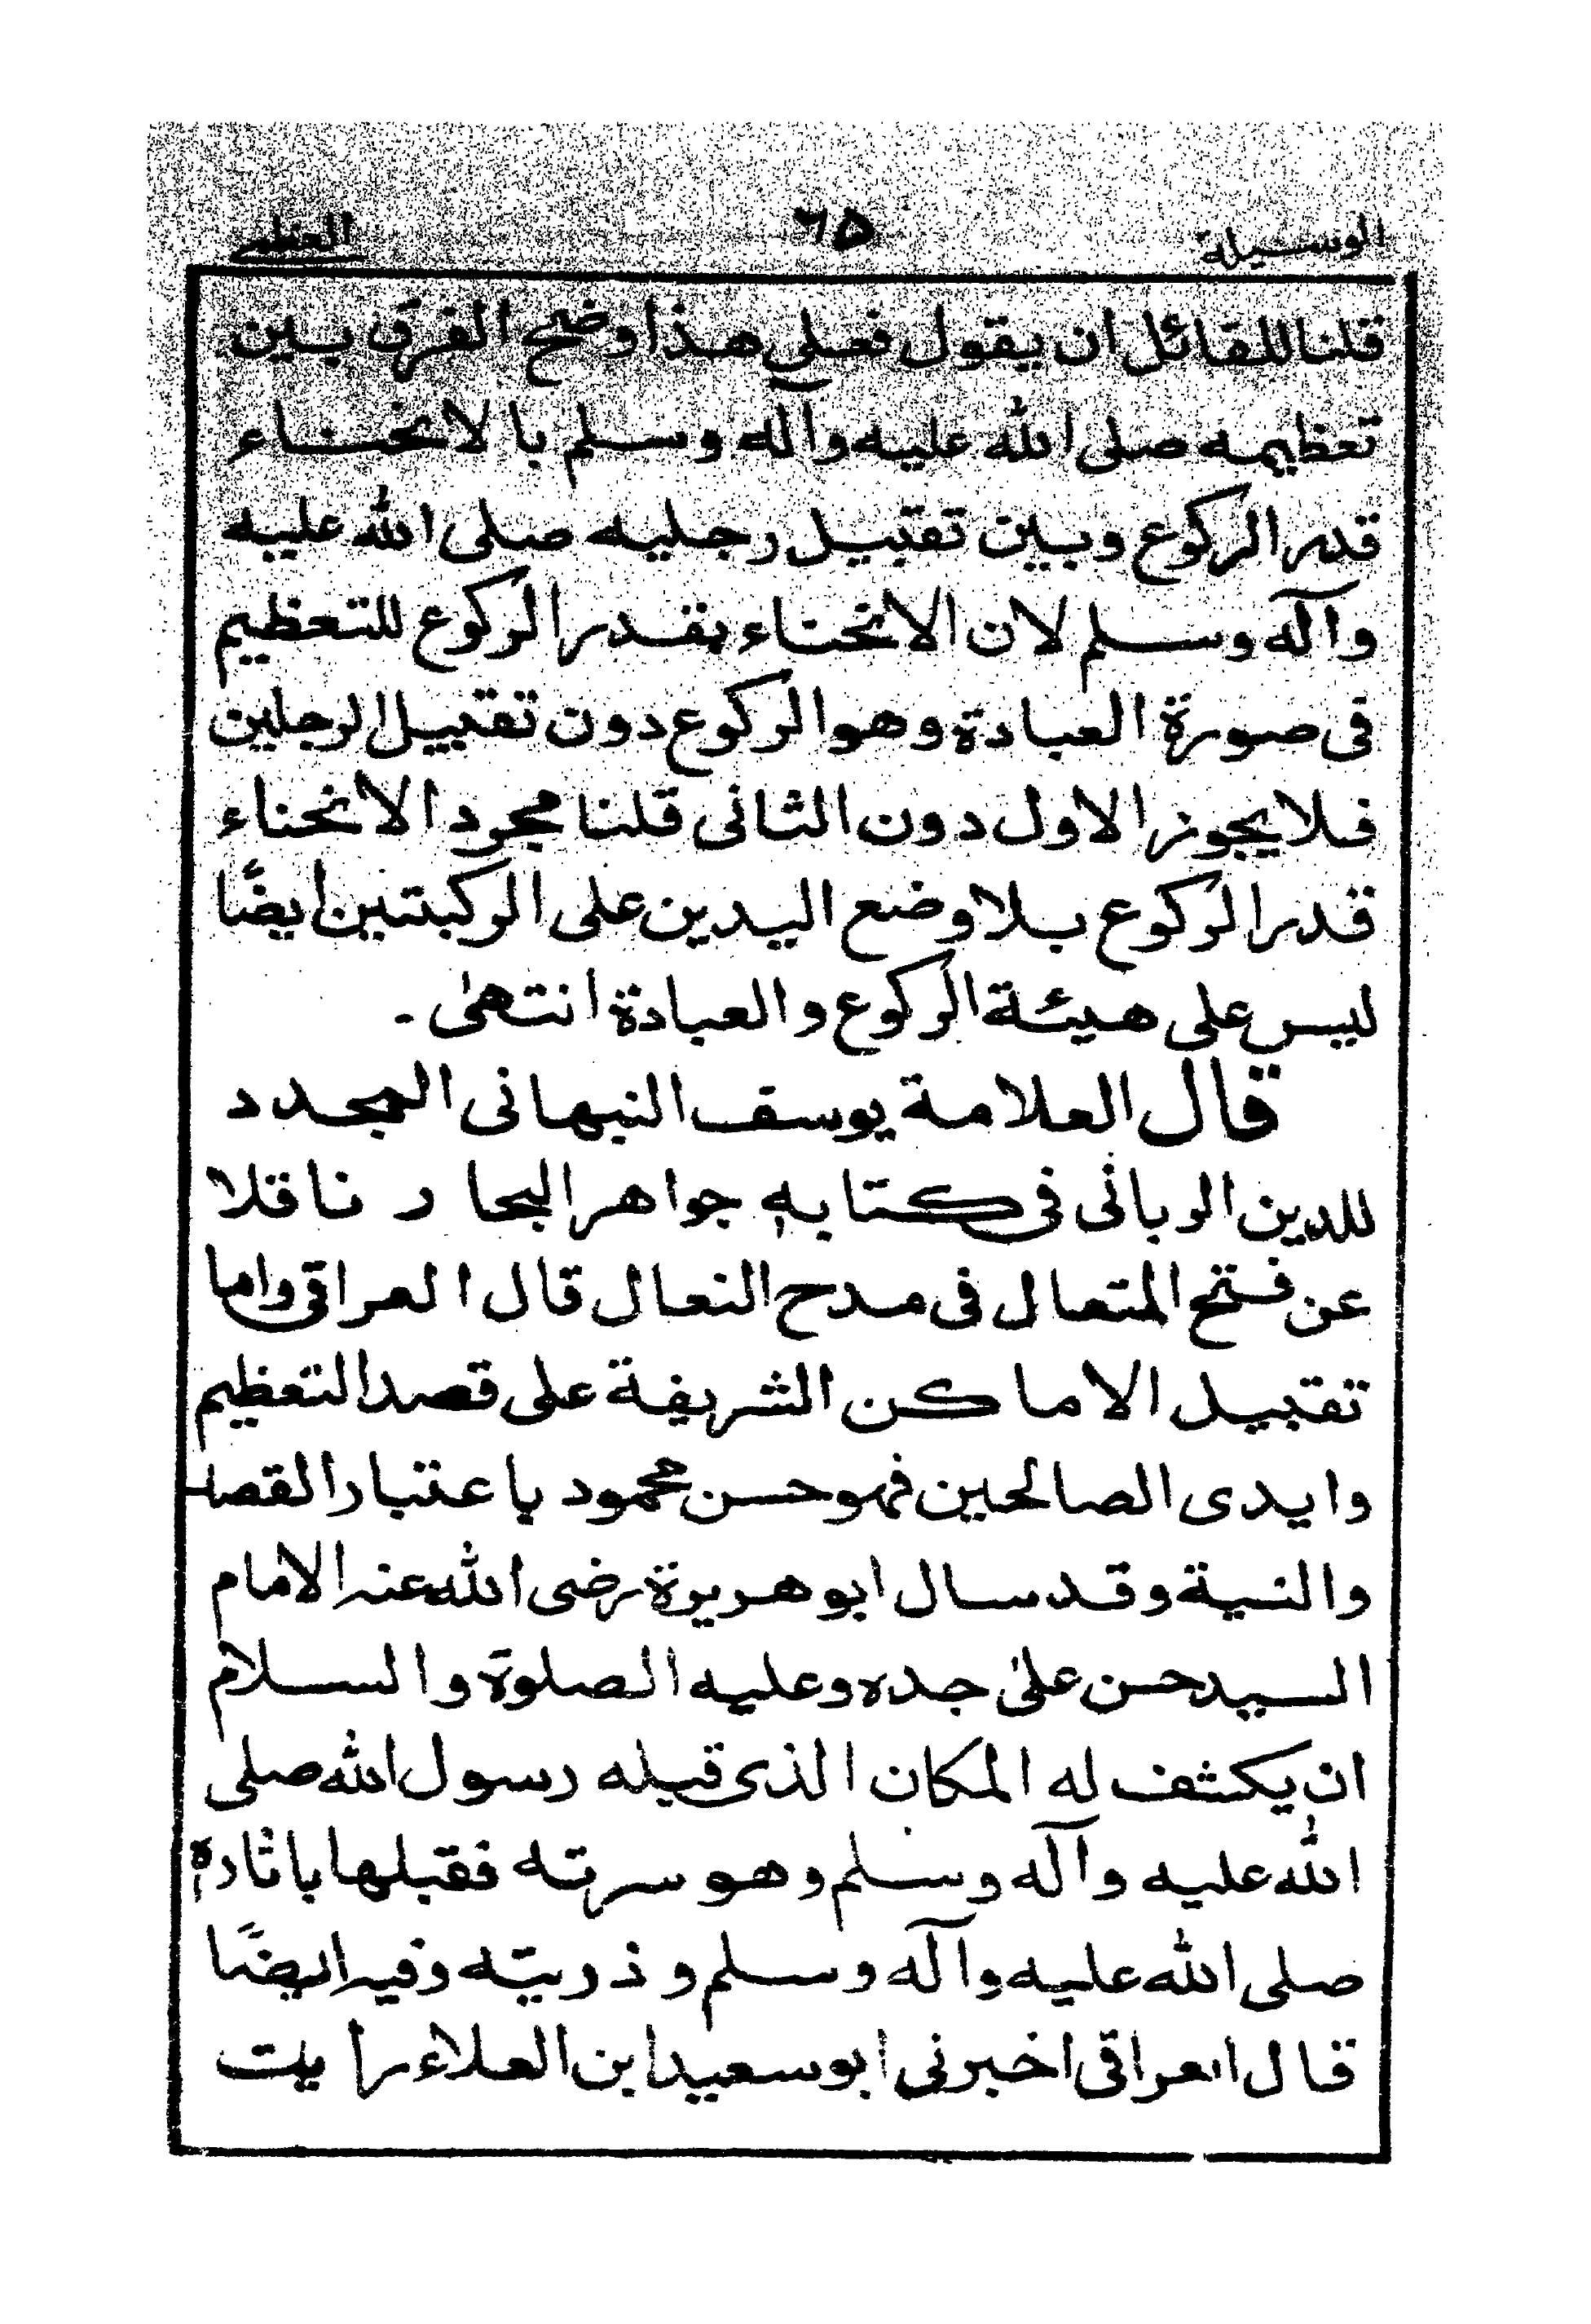 الوسيلة ٦٥ العظمى
قلنا للقائل ان يقول فعلى هذا وضح الفرق بين
تعظيمه صلى الله عليه وآله وسلم بالانحناء
قدر الركوع وبين تقبيل رجليه صلى الله عليه
وآله وسلم لان الانحناء بقدر الركوع للتعظيم
فى صورة العبادة وهو الركوع دون تقبيل الرجلين
فلا يجوز الاول دون الثانى قلنا مجرد الانحناء
قدر الركوع بلا وضع اليدين على الركبتين ايضًا
ليس على هيئة الركوع والعبادة انتهى -
قال العلامة يوسف النبهانى المجدد
للدين الوبانى فى كتابه جواهر البحار ناقلا
عن فتح المتعال فى مدح النعال قال العراقى واما
تقبيل الاماكن الشريفة على قصد التعظيم
وايدى الصالحين فهو حسن محمود باعتبار القصد
والنية وقد سال ابو هريرة رضى الله عنه الامام
السيد حسن على جده وعليه الصلوة والسلام
ان يكشف له المكان الذى قبله رسول الله صلى
الله عليه وآله وسلم وهو سرته فقبلها باثاره
صلى الله عليه وآله وسلم وذريته وفيه ايضًا
قال العراقى اخبرنى ابو سعيد ابن العلاء رايت